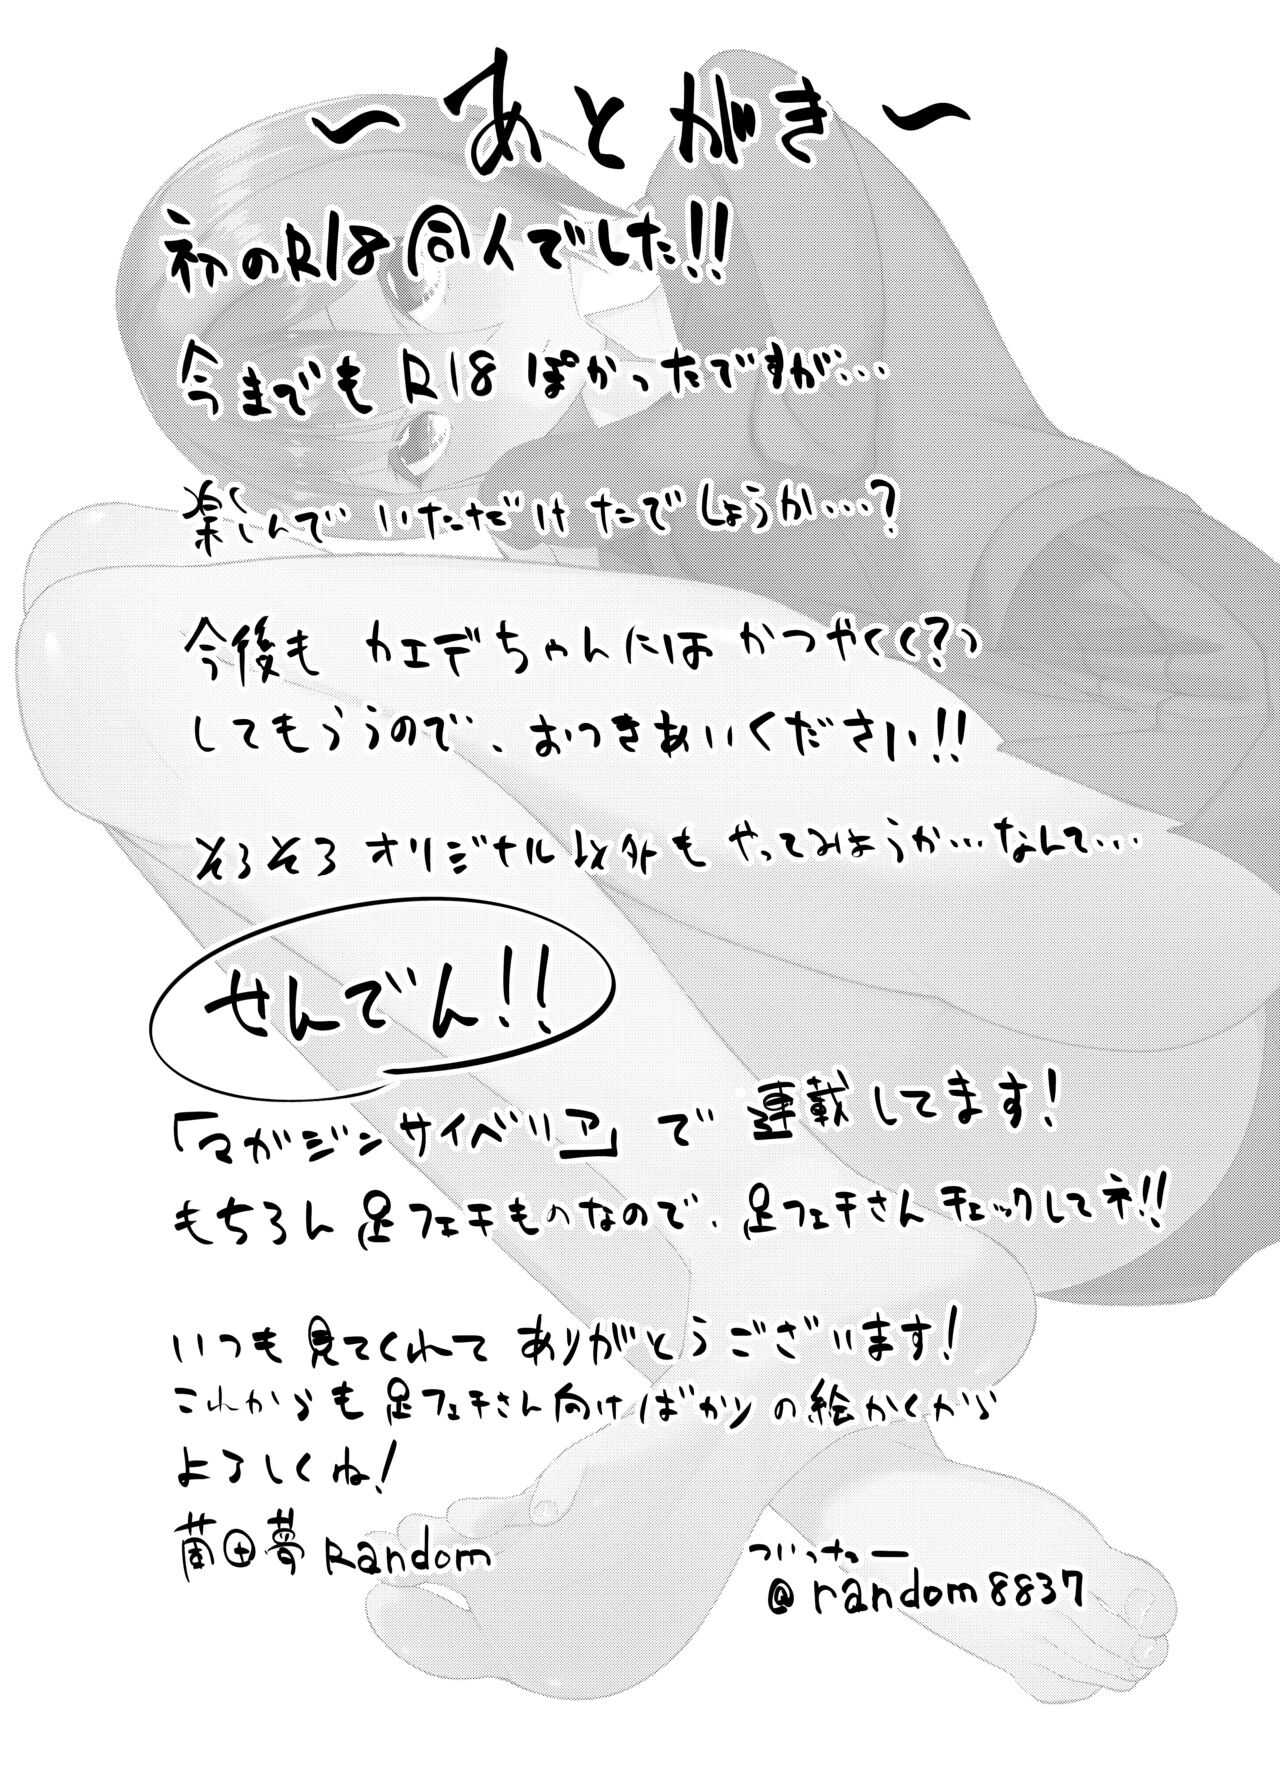 ～あとがき～
初のR18同人でした!!
今までもR18ぽかったですが…
楽しんでいただけたでしょうか…?
今後もカエデちゃんにはかつやく(?)
してもらうので、おつきあいください!!
そろそろオリジナル以外もやってみようか…なんて…
せんでん!!
「マガジンサイベリア」で連載してます!
もちろん足フェチものなので、足フェチさんチェックしてネ!!
いつも見てくれてありがとうございます!
これからも足フェチさん向けばかりの絵かくから
よろしくね!
薗田夢Random
ついったー
@random8837